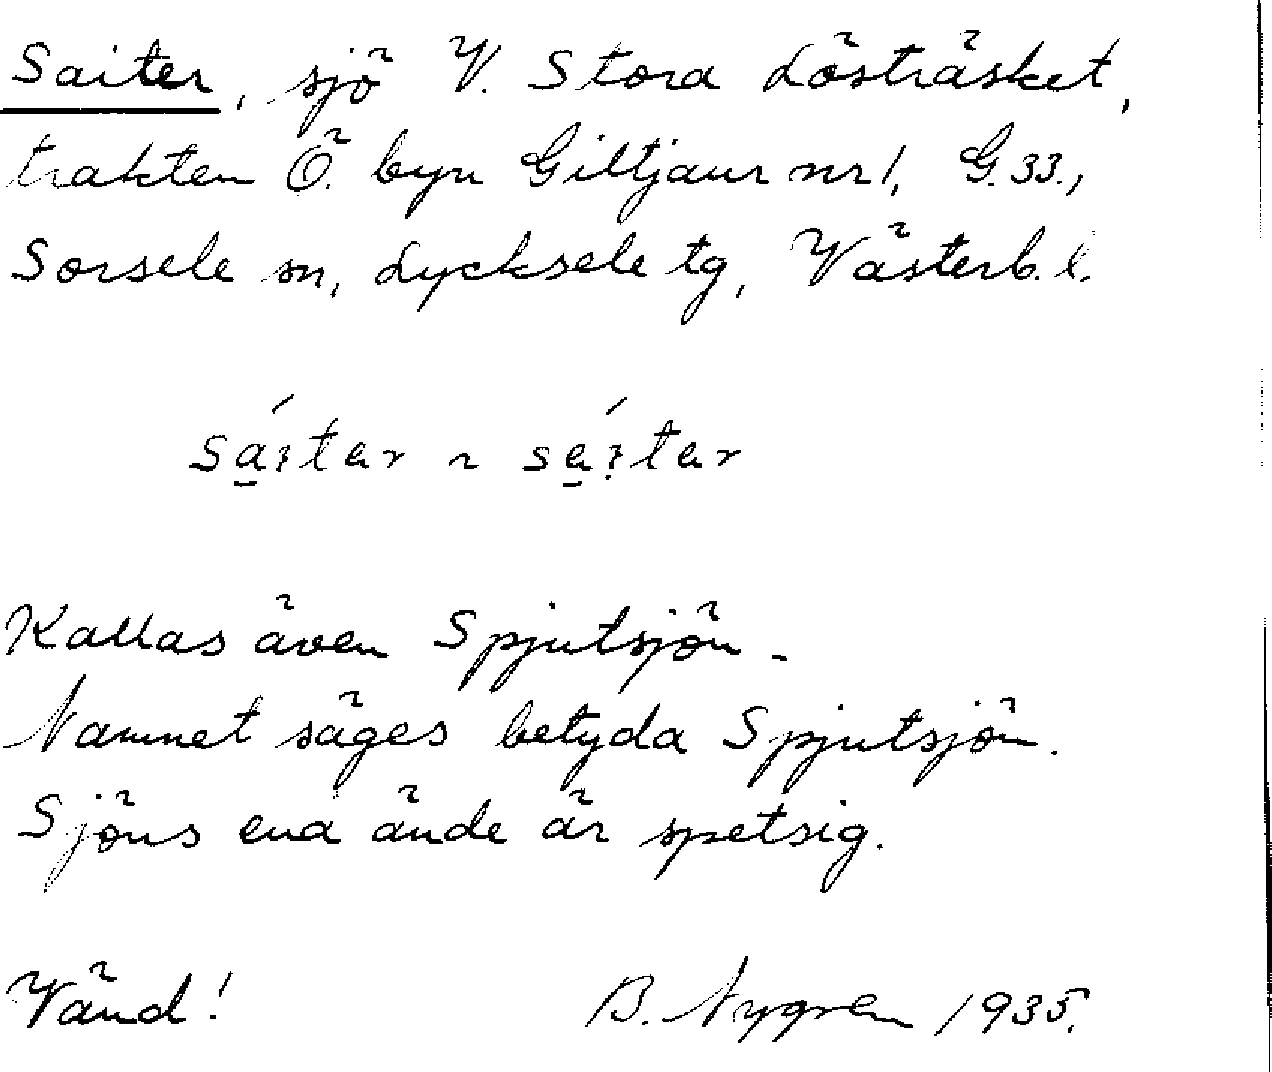 Saiter, sjö V. Stora Lösträsket,
trakten Ö. byn Giltjaur nr 1, G. 33.,
Sorsele sn, Lycksele tg, Västerb. l.
Kallas även Spjutsjön.
Namnet säges betyda Spjutsjön.
Sjöns ena ände är spetsig.
Vänd! B. Nygren 1935.